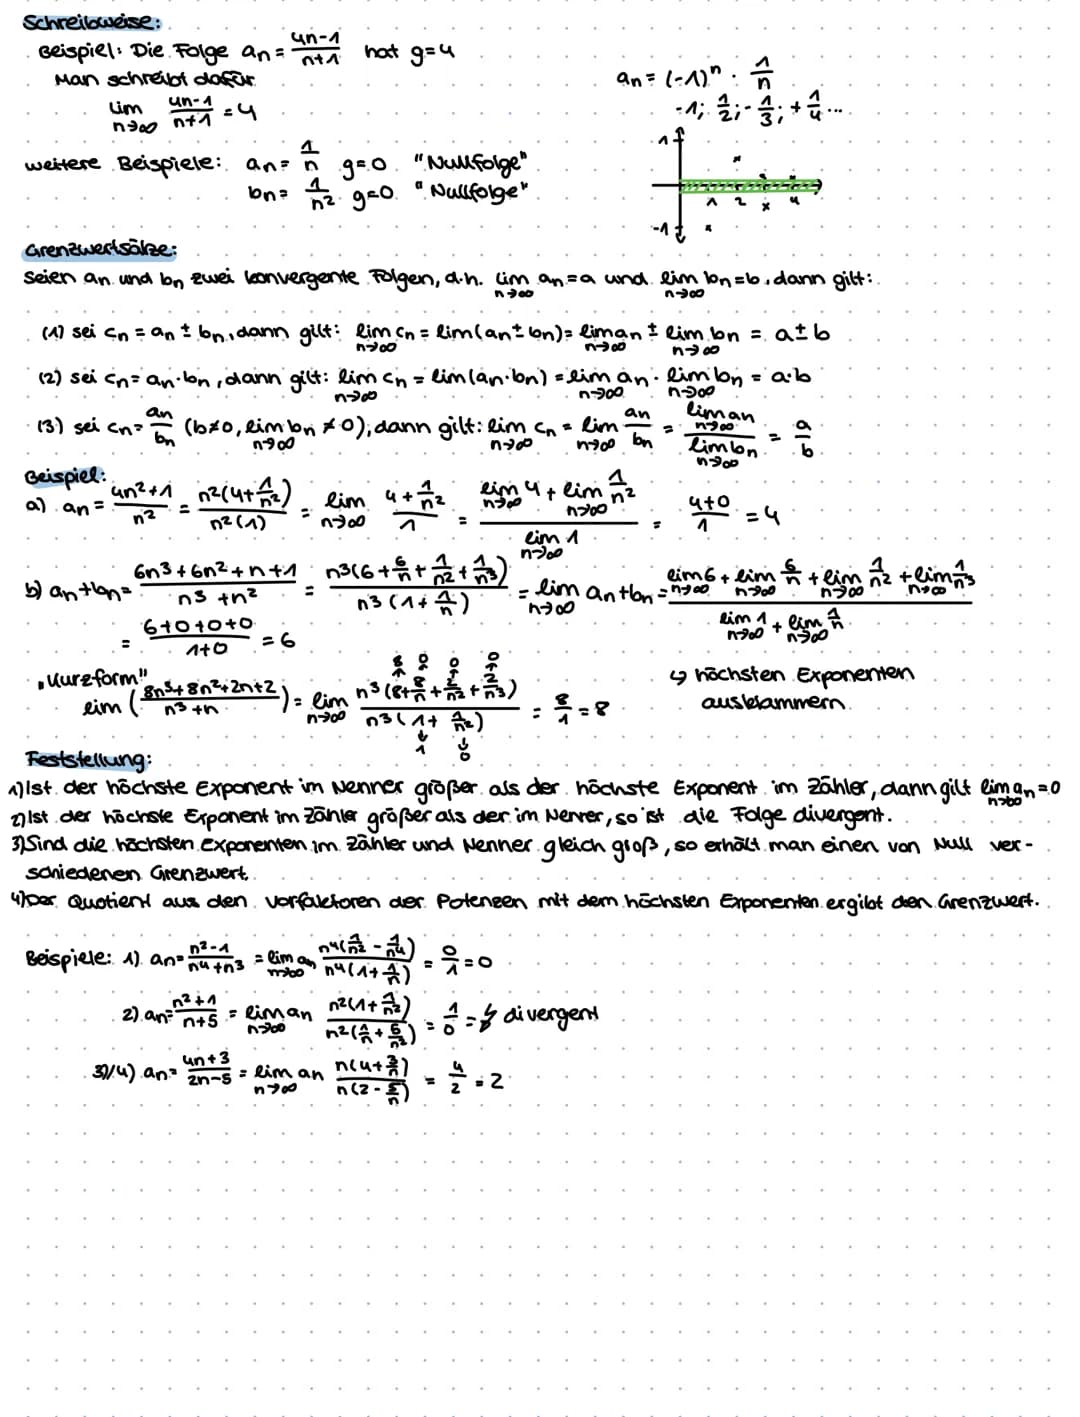 Schreibweise:
Beispiel: Die Folge an = (4n-1)/(n+1) hat g=4
Man schreibt dafür
lim n→∞ (4n-1)/(n+1) = 4
an = (-1)^n · 1/n
-1; 1/2; -1/3; +1/4 ...
weitere Beispiele: an = 1/n g=0 "Nullfolge"
bn = 1/n² g=0 "Nullfolge"
1
1 2 4
-1
Grenzwertsätze:
Seien an und bn zwei konvergente Folgen, d.h. lim n→∞ an = a und lim n→∞ bn = b, dann gilt:
(1) sei cn = an ± bn, dann gilt: lim n→∞ cn = lim(an ± bn) = lim n→∞ an ± lim n→∞ bn = a ± b
(2) sei cn = an · bn, dann gilt: lim n→∞ cn = lim(an · bn) = lim n→∞ an · lim n→∞ bn = a·b
(3) sei cn = an/bn (b≠0, lim n→∞ bn ≠ 0), dann gilt: lim n→∞ cn = lim n→∞ an/bn = (lim n→∞ an)/(lim n→∞ bn) = a/b
Beispiel:
a) an = (4n²+1)/n² = n²(4+1/n²)/n²(1) = lim n→∞ (4+1/n²)/1 = (lim n→∞ 4 + lim n→∞ 1/n²)/(lim n→∞ 1) = (4+0)/1 = 4
b) an+bn = (6n³+6n²+n+1)/(n³+n²) = n³(6+6/n+1/n²+1/n³)/n³(1+1/n) = lim n→∞ an+bn = (lim n→∞ 6 + lim n→∞ 6/n + lim n→∞ 1/n² + lim n→∞ 1/n³)/(lim n→∞ 1 + lim n→∞ 1/n)
= (6+0+0+0)/(1+0) = 6
"Kurzform"
8 0 0 0
lim ((8n³+8n²+2n+2)/(n³+n)) = lim n→∞ n³(8+8/n+2/n²+2/n³)/n³(1+1/n²) = 8/1 = 8
1 0
↳ höchsten Exponenten
ausklammern
Feststellung:
1) Ist der höchste Exponent im Nenner größer als der höchste Exponent im Zähler, dann gilt lim n→∞ an = 0
2) Ist der höchste Exponent im Zähler größer als der im Nenner, so ist die Folge divergent.
3) Sind die höchsten Exponenten im Zähler und Nenner gleich groß, so erhält man einen von Null ver-
schiedenen Grenzwert.
4) Der Quotient aus den Vorfaktoren der Potenzen mit dem höchsten Exponenten ergibt den Grenzwert.
Beispiele: 1) an = (n²-1)/(n⁴+n³) = lim n→∞ an n⁴(1/n²-1/n⁴)/n⁴(1+1/n) = 0/1 = 0
2) an = (n²+1)/(n+5) = lim n→∞ an n²(1+1/n²)/n²(1/n+5/n²) = 1/0 = ↯ divergent
3)/4) an = (4n+3)/(2n-5) = lim n→∞ an n(4+3/n)/n(2-5/n) = 4/2 = 2